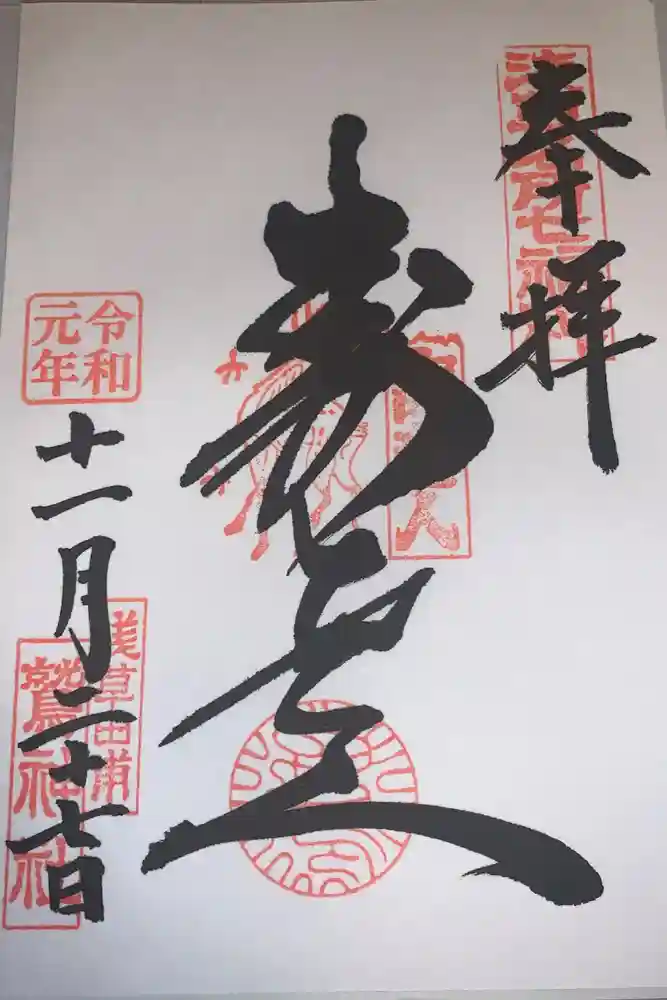 奉拝
浅草名所七福神
寿老人
令和
元年
十一月二十七日
浅草田甫
鷲神社